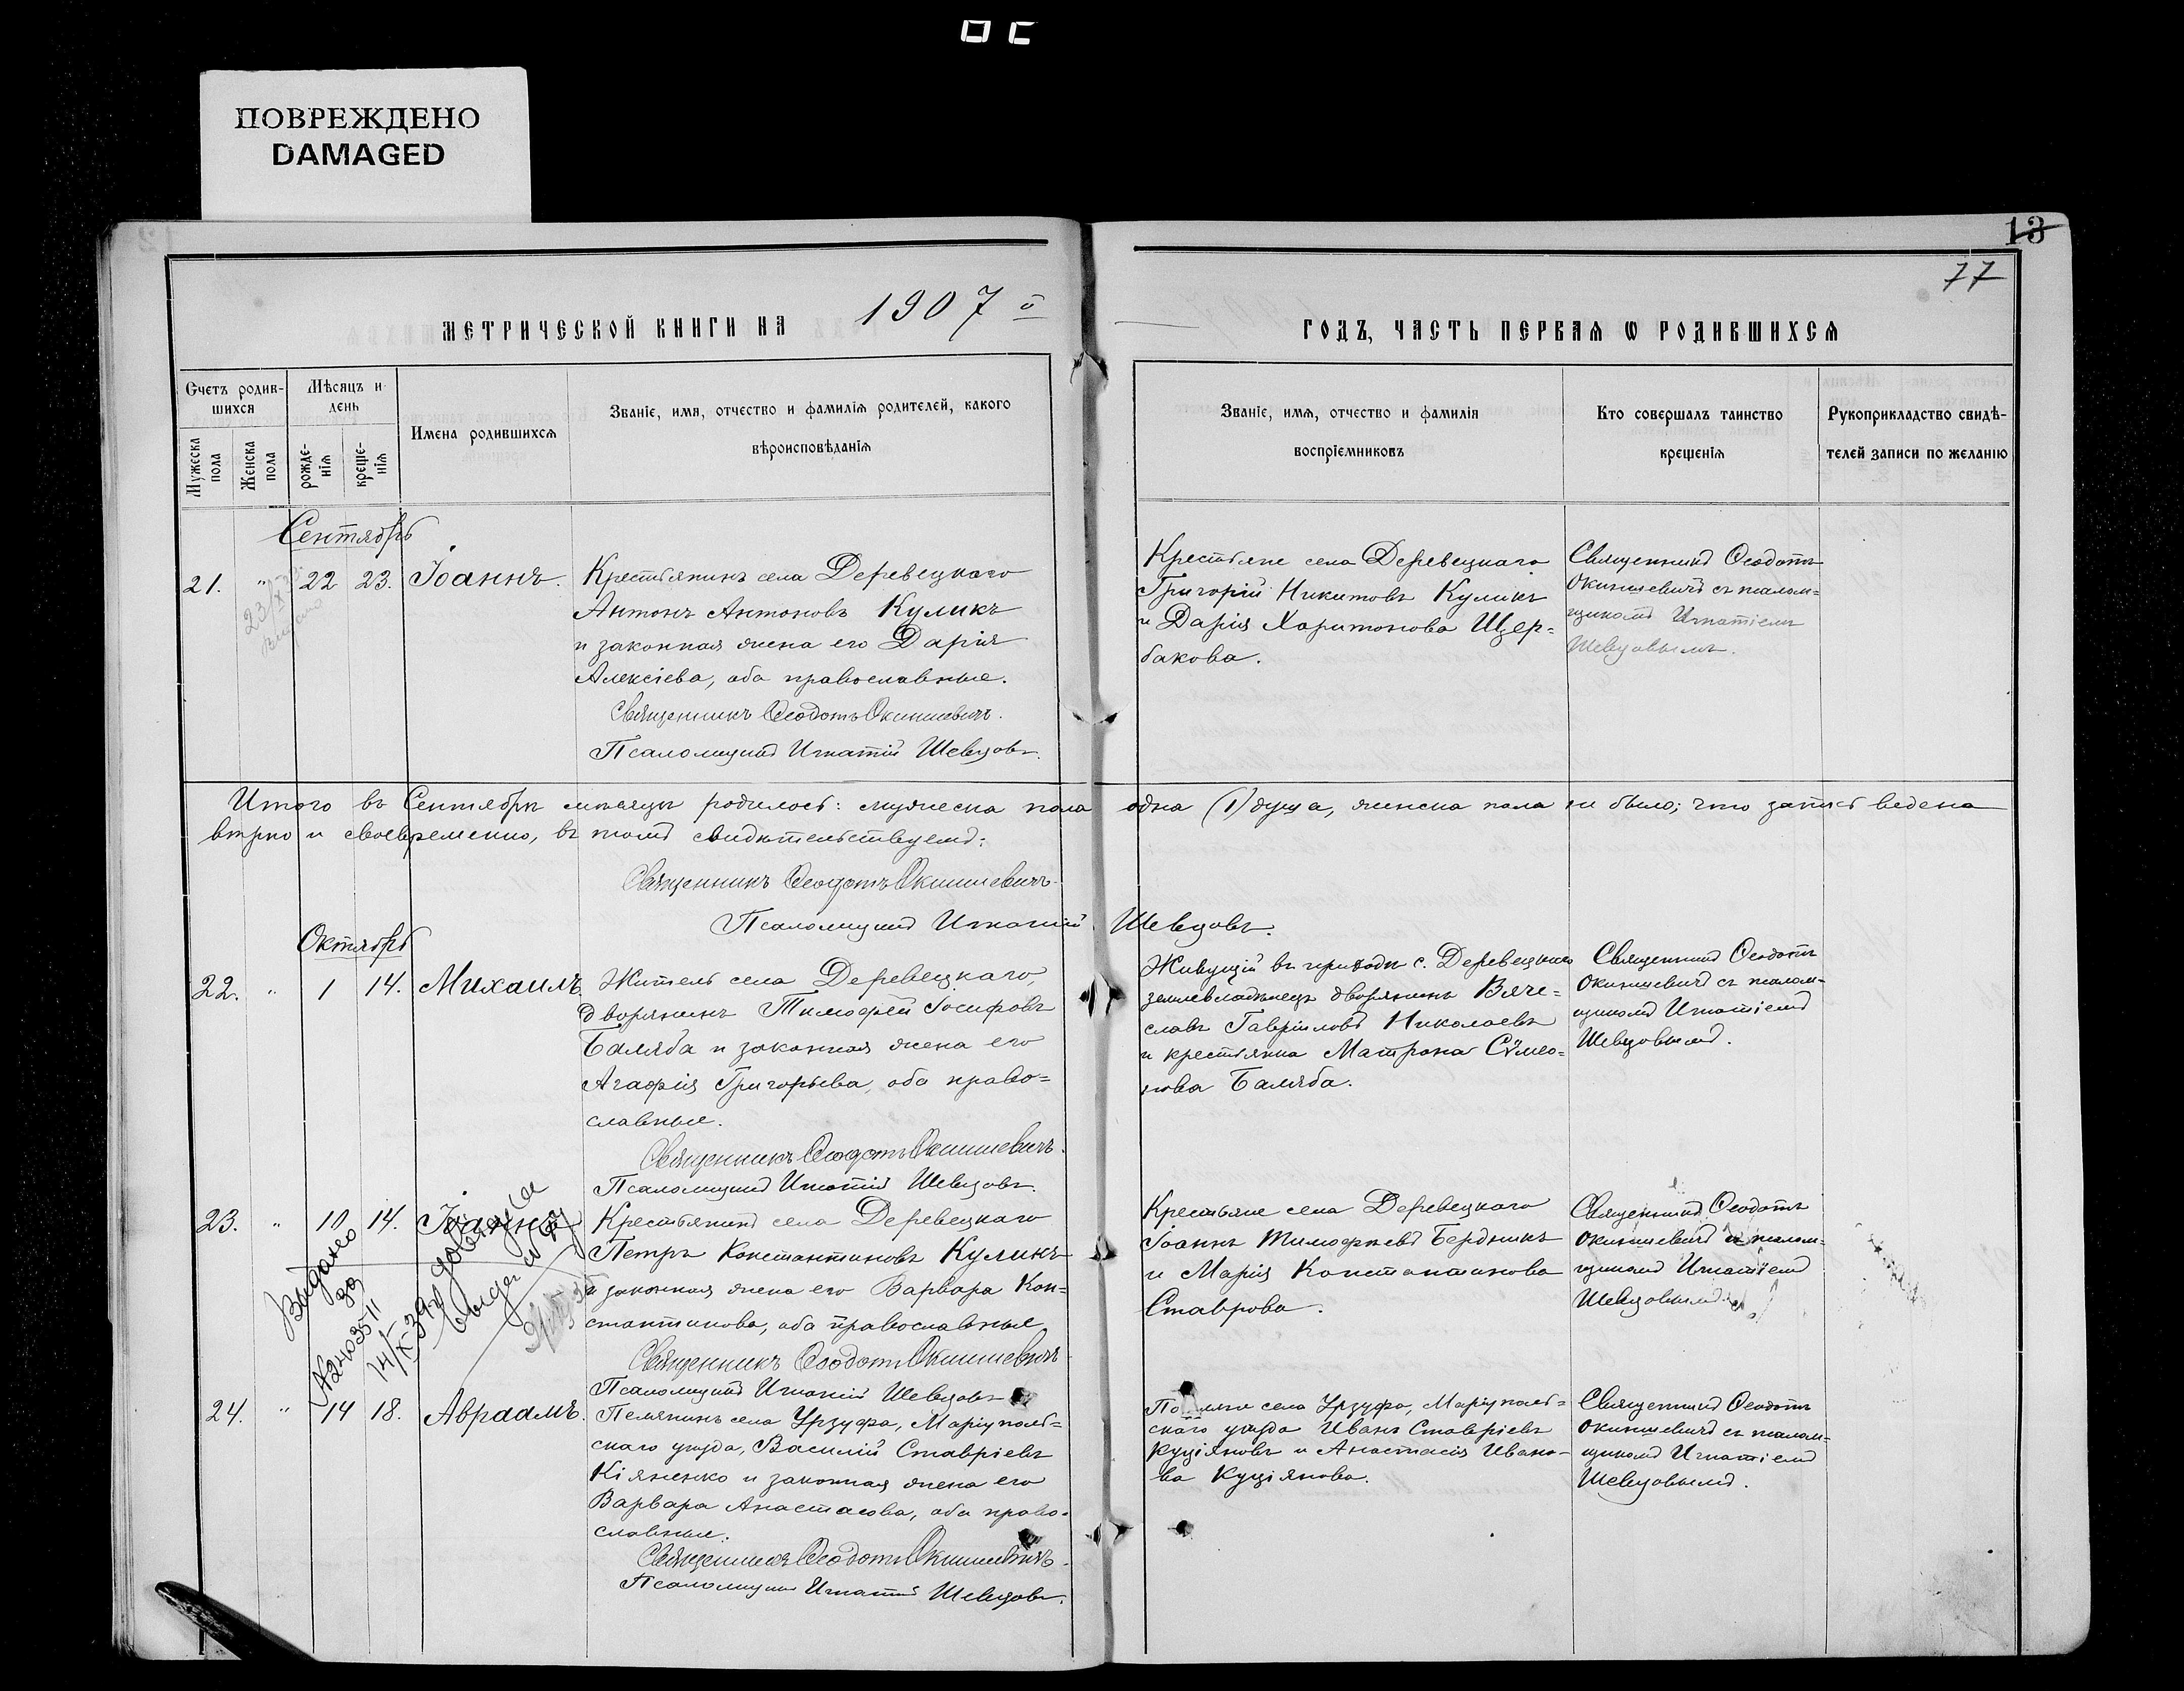 ПОВРЕЖДЕНО
DAMAGED
13
77
МЕТРИЧЕСКОЙ КНИГИ НА 1907 й
ГОДЪ, ЧАСТЬ ПЕРВАЯ Ѡ РОДИВШИХСЯ
Счетъ родив-
шихся
Мѣсяцъ и
день
Имена родившихся
Званіе, имя, отчество и фамилія родителей, какого
вѣроисповѣданія
Мужеска пола
Женска пола
рожде-
нія
креще-
нія
Званіе, имя, отчество и фамилія
воспріемниковъ
Кто совершалъ таинство
крещенія
Рукоприкладство свидѣ-
телей записи по желанію
Сентябрь
21. " 22 23. Іоаннъ.
Крестьянинъ села Деревецкаго
Антонъ Антоновъ Куликъ
и законная жена его Дарія
Алексіева, оба православные.
Священникъ Ѳеодотъ Окиншевичъ.
Псаломщикъ Игнатій Шевцовъ.
Крестьяне села Деревецкаго
Григорій Никитовъ Куликъ
и Дарія Харитонова Щер-
бакова.
Священникъ Ѳеодотъ
Окиншевичъ съ псалом-
щикомъ Игнатіемъ
Шевцовымъ.
Итого въ Сентябрѣ мѣсяцѣ родилось: мужеска пола одна (1) душа, женска пола не было; что запись ведена
вѣрно и своевременно, въ томъ свидѣтельствуемъ:
Священникъ Ѳеодотъ Окиншевичъ.
Псаломщикъ Игнатій Шевцовъ.
Октябрь
22. " 1 14. Михаилъ.
Житель села Деревецкаго,
дворянинъ Тимоѳей Іосифовъ
Баляба и законная жена его
Агафія Григорьева, оба право-
славные.
Священникъ Ѳеодотъ Окиншевичъ.
Псаломщикъ Игнатій Шевцовъ.
Живущій въ приходѣ с. Деревецкаго
землевладѣлецъ дворянинъ Вяче-
славъ Гавріиловъ Николаевъ
и крестьянка Матрона Сѵмео-
нова Баляба.
Священникъ Ѳеодотъ
Окиншевичъ съ псалом-
щикомъ Игнатіемъ
Шевцовымъ.
23. " 10 14. Іоаннъ
Крестьянинъ села Деревецкаго
Петръ Константиновъ Куликъ
и законная жена его Варвара Кон-
стантинова, оба православные
Священникъ Ѳеодотъ Окиншевичъ
Псаломщикъ Игнатій Шевцовъ
Крестьяне села Деревецкаго
Іоаннъ Тимоѳеевъ Бердникъ
и Марія Константинова
Ставрова.
Священникъ Ѳеодотъ
Окиншевичъ съ псалом-
щикомъ Игнатіемъ
Шевцовымъ.
24. " 14 18. Авраамъ.
Поселянинъ села Урзуфа, Маріуполь-
скаго уѣзда, Василій Ставріевъ
Кіяненко и законная жена его
Варвара Анастасова, оба право-
славные.
Священникъ Ѳеодотъ Окиншевичъ.
Псаломщикъ Игнатій Шевцовъ.
села Урзуфа, Маріуполь-
скаго уѣзда Иванъ Ставріевъ
Куціяновъ и Анастасія Ивано-
ва Куціянова.
Священникъ Ѳеодотъ
Окиншевичъ съ псалом-
щикомъ Игнатіемъ
Шевцовымъ.